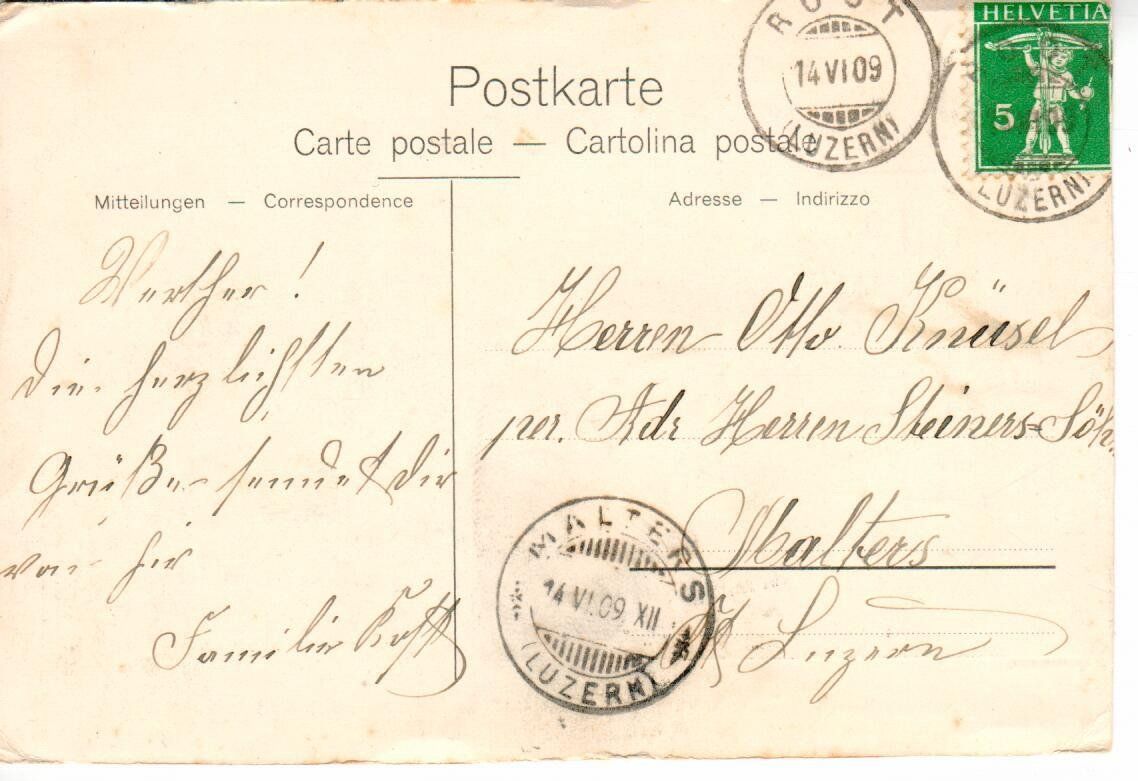 Postkarte
Carte postale — Cartolina postale
Mitteilungen — Correspondence
Adresse — Indirizzo
HELVETIA
5
14 VI 09
(LUZERN)
(LUZERN)
Werther!
Die herzlichsten
Grüße sendet Dir
von hier
Familie
Herren Otto Knüsel,
per. Adr Herren Steiners=Söh
Malters
Luzern
MALTERS
14 VI.09 XII
(LUZERN)